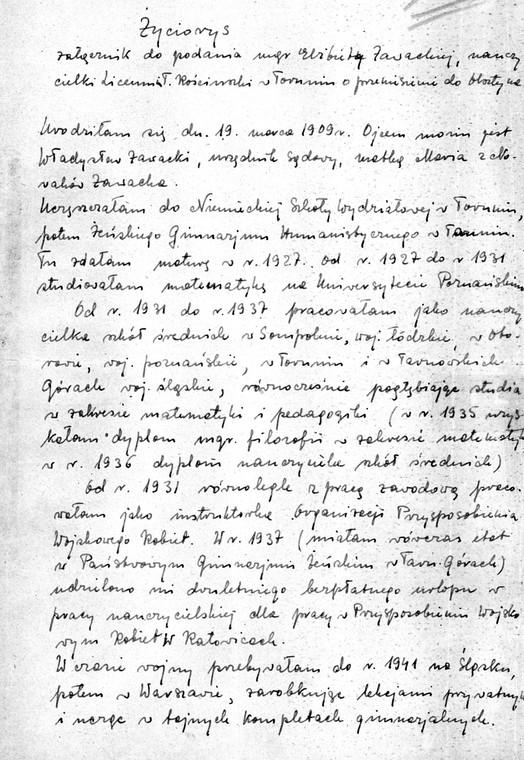 Życiorys
załącznik do podania mgr Elżbiety Zawackiej, nauczy
cielki Liceum T. Kościuszki w Toruniu o przeniesienie do Olsztyna
Urodziłam się dn. 19. marca 1909 r. Ojcem moim jest
Władysław Zawacki, urzędnik sądowy, matką Maria z No-
waków Zawacka.
Uczęszczałam do Niemieckiej Szkoły Wydziałowej w Toruniu,
potem Żeńskiego Gimnazjum Humanistycznego w Toruniu.
Tu zdałam maturę w r. 1927. Od r. 1927 do r 1931
studiowałam matematykę na Uniwersytecie Poznańskim
Od r. 1931 do r. 1937 pracowałam jako nauczy
cielka szkół średnich w Sompolnie, woj. łódzkie, w Obo-
rowie, woj. poznańskie, w Toruniu i w Tarnowskich
Górach woj. śląskie, równocześnie pogłębiając studia
w zakresie matematyki i pedagogiki (w r. 1935 uzys-
kałam dyplom mgr. filozofii w zakresie matematyki
w r. 1936 dyplom nauczyciela szkół średnich)
Od r. 1931 równolegle z pracą zawodową praco-
wałam jako instruktorka Organizacji Przysposobienia
Wojskowego Kobiet. W r. 1937 (miałam wówczas etat
w Państwowym Gimnazjum Żeńskim w Tarn. Górach)
udzielono mi dwuletniego bezpłatnego urlopu w
pracy nauczycielskiej dla pracy w Przysposobieniu Wojsko
wym Kobiet w Katowicach.
W czasie wojny przebywałam do r. 1941 na Śląsku,
potem w Warszawie, zarobkując lekcjami prywatnymi
i ucząc w tajnych kompletach gimnazjalnych.